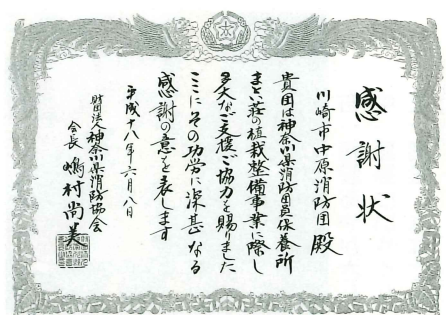 感謝状
川崎市中原消防団殿
貴団は神奈川県消防団員保養所
まとい荘の植栽整備事業に際し
多大なご支援ご協力を賜りました
ここにその功労に深甚なる
感謝の意を表します
平成十八年六月八日
財団法人神奈川県消防協会
会長 嶋村尚美